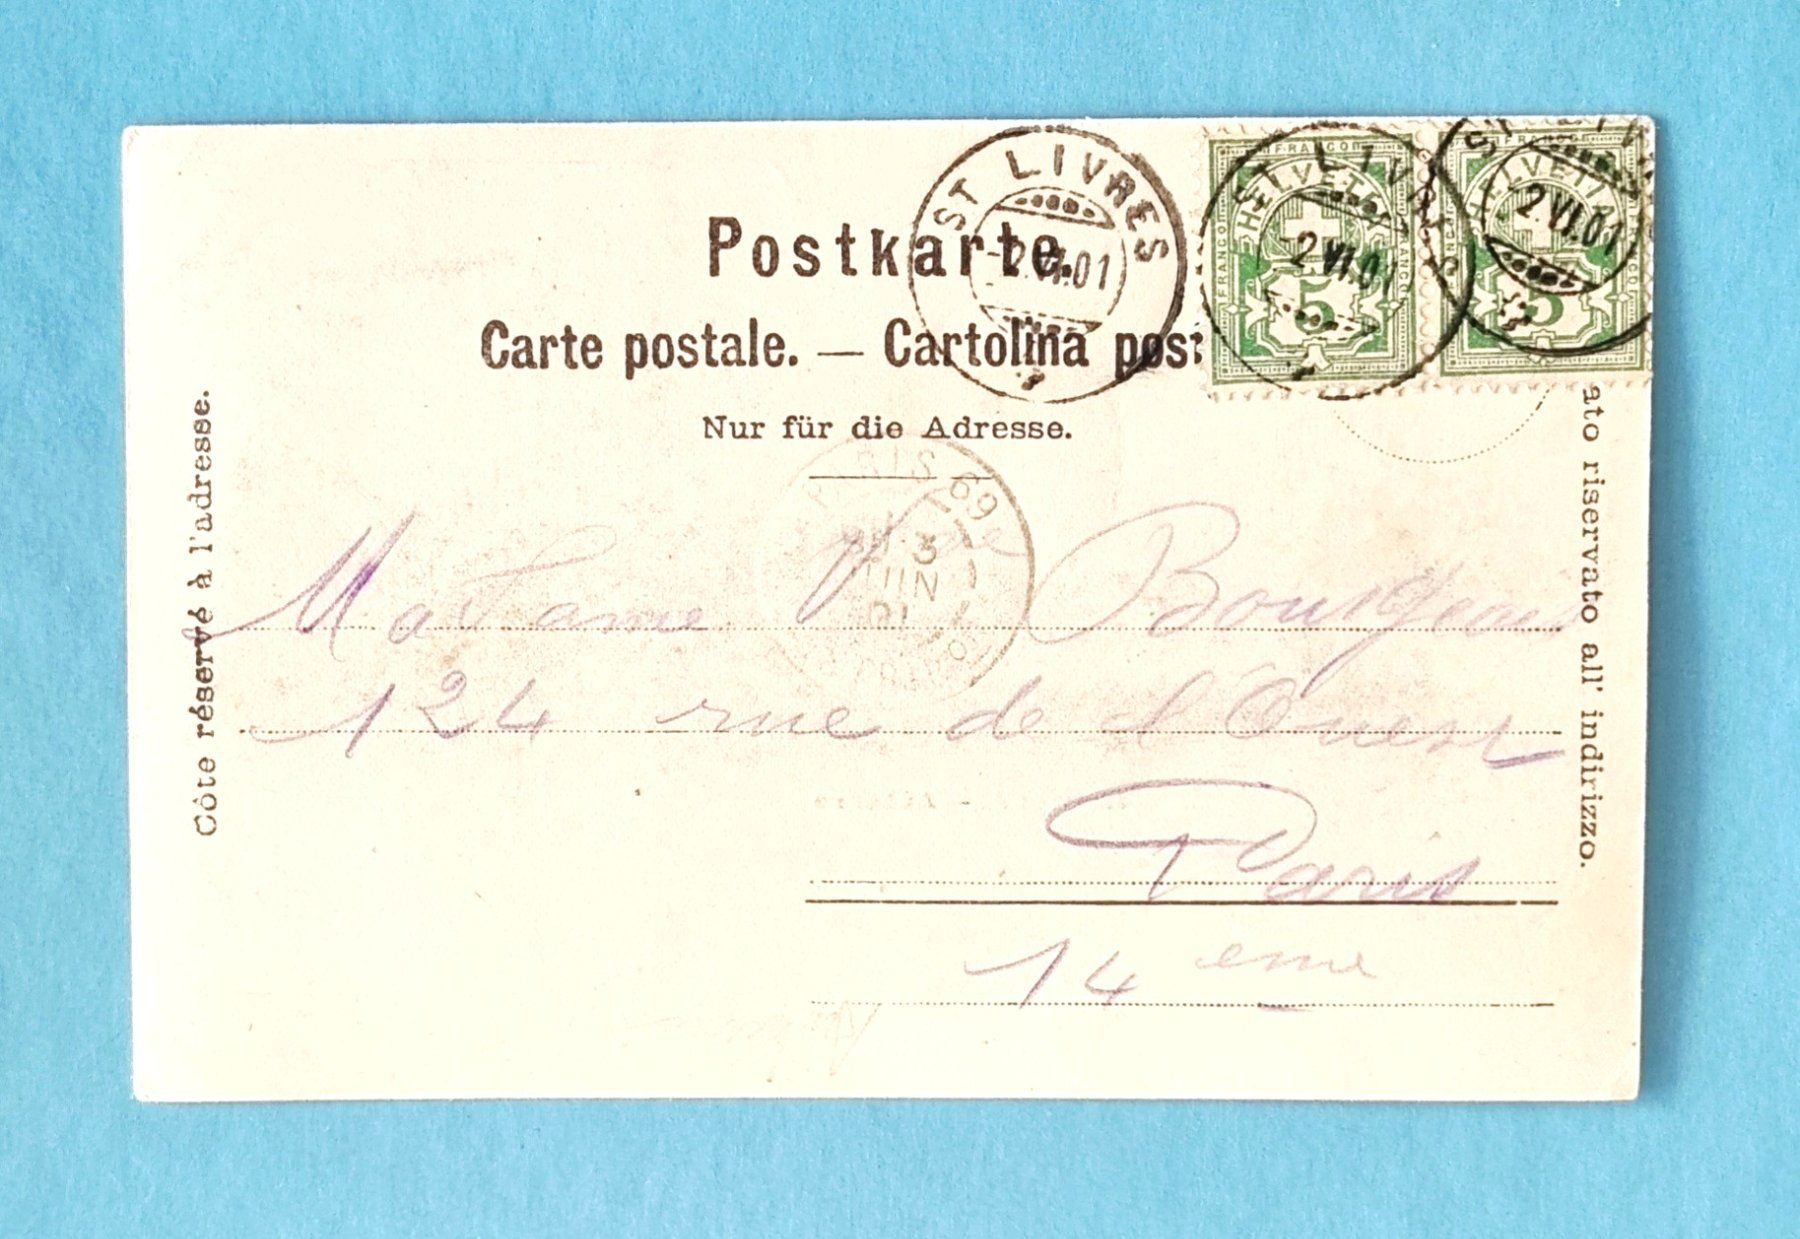 Postkarte.
Carte postale. — Cartolina post
Nur für die Adresse.
Côte réservé à l'adresse.
ato riservato all' indirizzo.
ST LIVRES
-2.VI.01
FRANCO HELVETIA FRANCO
5
ST LIVRES
-2.VI.01
FRANCO HELVETIA FRANCO
5
ST LIV
2.VI.01
RIS 69
3
JUIN
01
Madame Vve Bourgeois
124 rue de l'Ouest
Paris
14 eme